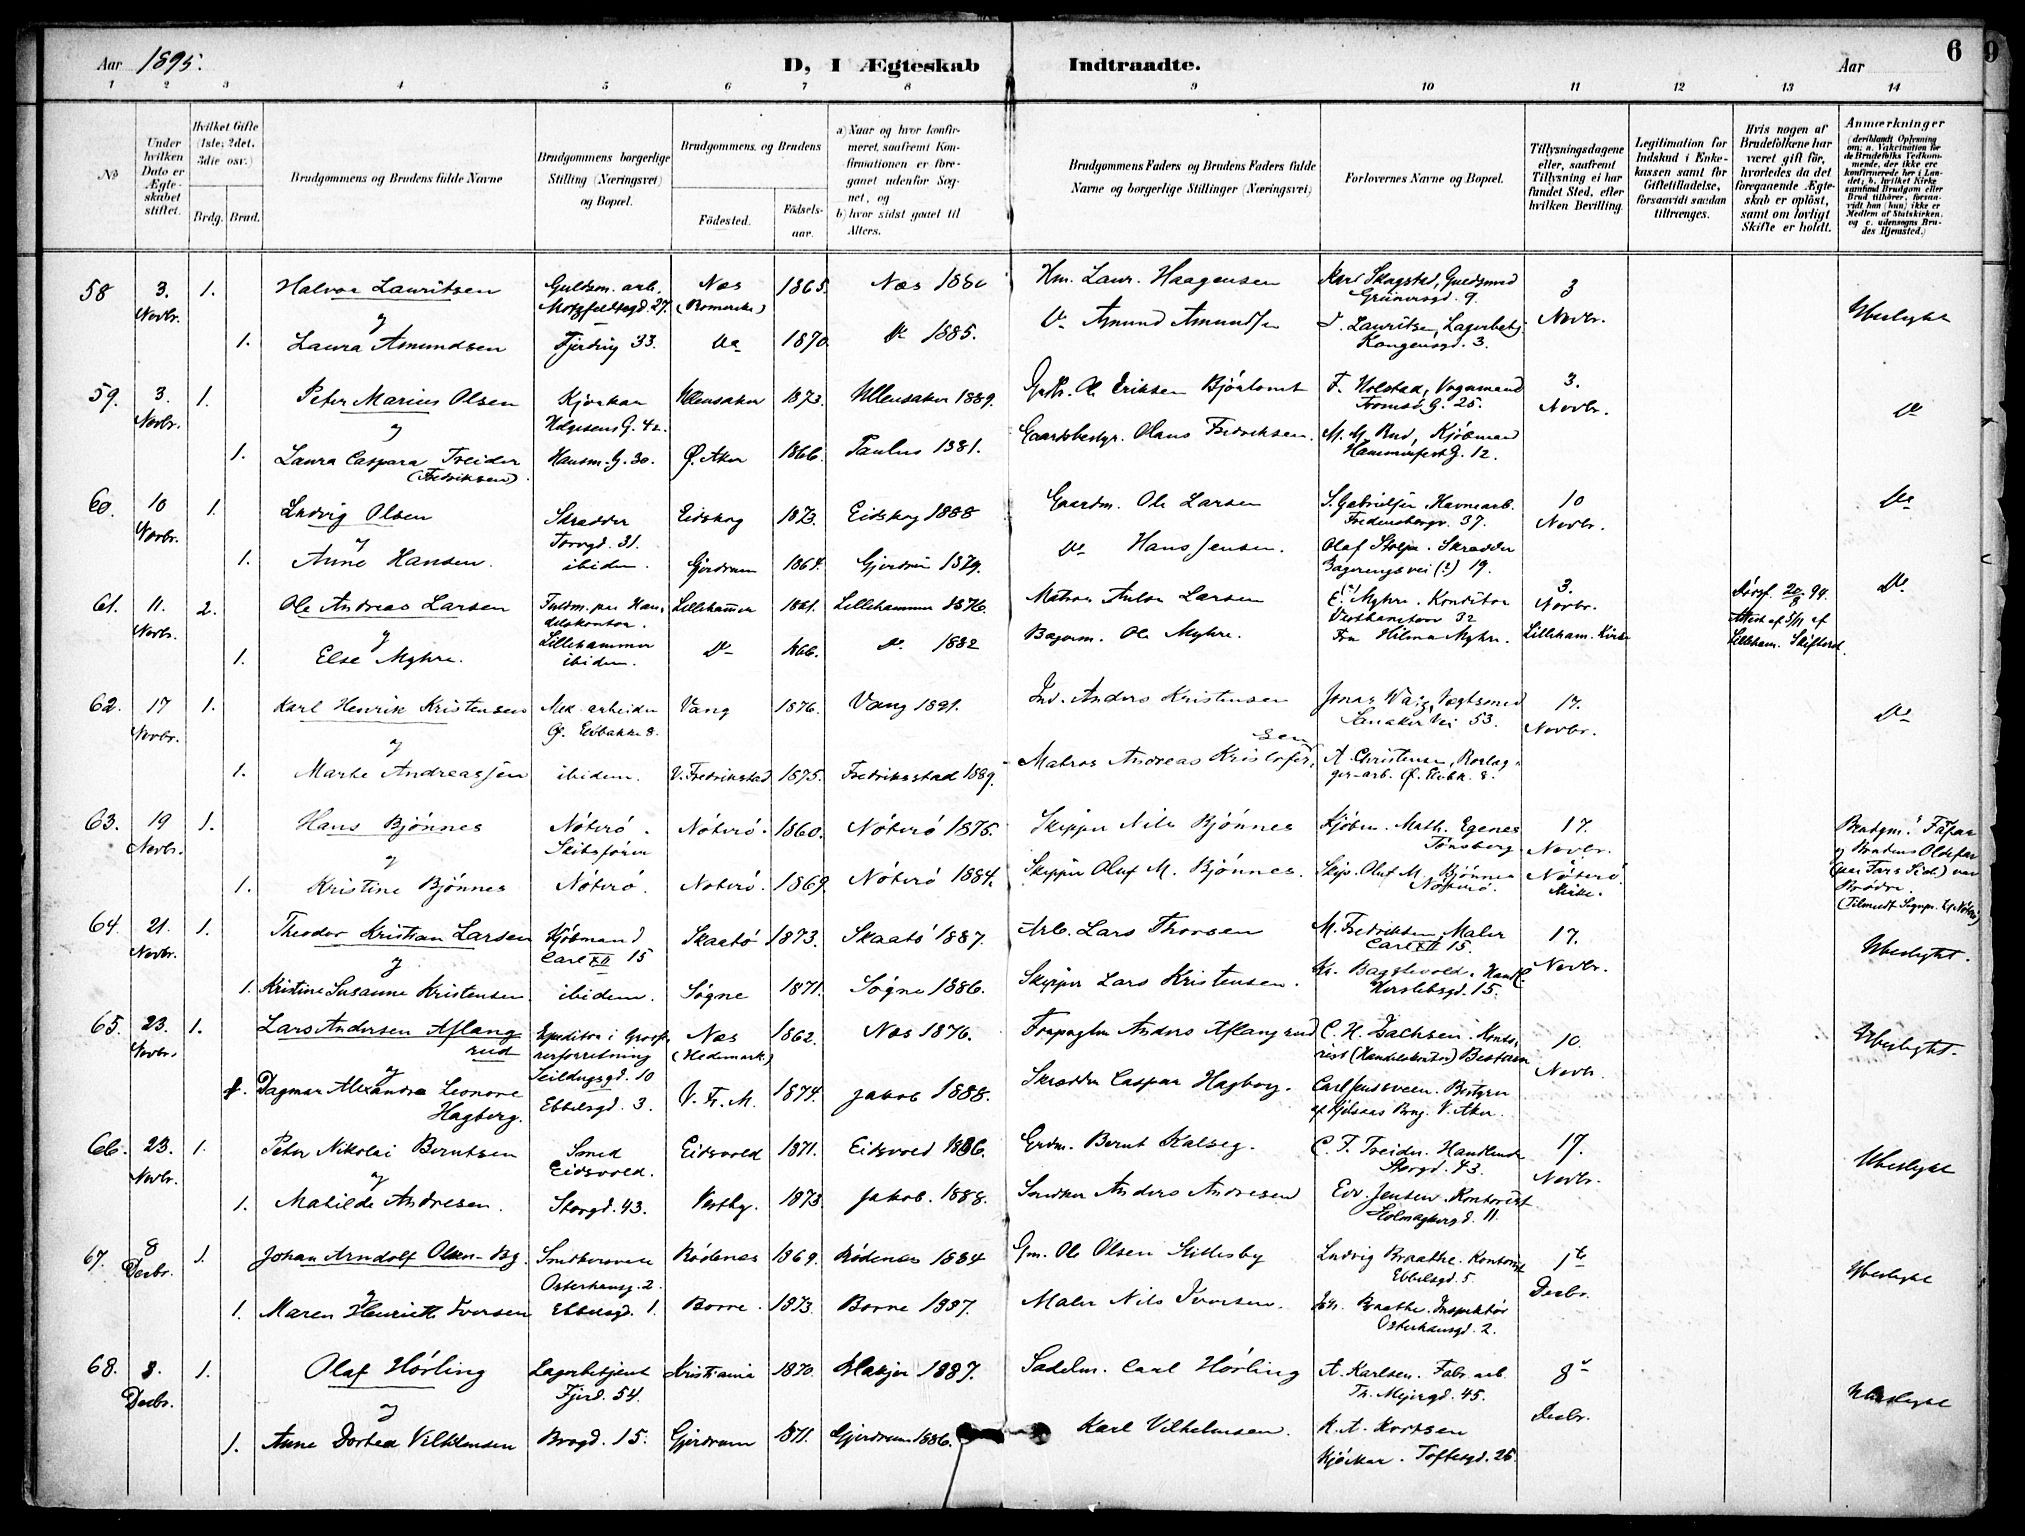 Aar 1895.
D, I Ægteskab Indtraadte.
Aar
6
1 2 3 4 5 6 7 8 9 10 11 12 13 14
No
Under hvilken Dato er Ægteskabet stiftet.
Hvilket Gifte (1ste, 2det, 3die osv.)
Brdg. Brud.
Brudgommens og Brudens fulde Navne
Brudgommens borgerlige Stilling (Næringsvei) og Bopæl.
Brudgommens og Brudens
Fødested.
Fødselsaar.
a) Naar og hvor konfirmeret, saafremt Konfirmationen er foregaaet udenfor Sognet, og
b) hvor sidst gaaet til Alters.
Brudgommens Faders og Brudens Faders fulde Navne og borgerlige Stillinger (Næringsvei)
Forlovernes Navne og Bopæl.
Tillysningsdagene eller, saafremt Tillysning ei har fundet Sted, efter hvilken Bevilling.
Legitimation for Indskud i Enkekassen samt for Giftetilladelse, forsaavidt saadan tiltrænges.
Hvis nogen af Brudefolkene har været gift før, hvorledes da det foregaaende Ægteskab er opløst, samt om lovligt Skifte er holdt.
Anmærkninger
58 3. Novbr. 1. Halvor Lauritsen Guldsm. arb. Motzfeldtsgd. 27. Næs (Romerike) 1865. Næs 1880 Hm. Laur. Haagensen Karl Skogstad, Guldsmed Grünersgd. 9. 3 Novbr. Ubeslægtet
og
1. Laura Amundsen Fjerding 33. Do 1870 Do 1885. Do Amund Amundsen Lauritsen, Lagerbetj. Kongensgd. 3.
59. 3. Novbr. 1. Peter Marius Olsen Kjørekar Helgesens G. 42. Ullensaker 1873. Ullensaker 1889. Ole Eriksen Bjørtomt F. Holstad, Vognmand Tromsø G. 25. 3. Novbr. Do
og
1. Laura Caspara Treider (Fredriksen). Hausm. G. 30. Ø. Aker 1866. Paulus 1881. Gaardsbestyr. Olaus Fredriksen. M. M. Rud, Kjøbmand Hammerfest G. 12.
60. 10 Novbr. 1. Ludvig Olsen Skrædder Torvgd. 31. Eidskog 1873. Eidskog 1888 Gaardm. Ole Larsen S. Gabrielsen, Havnearb. Fredensborgv. 37. 10 Novbr. Do
og
1. Anne Hansen. ibidem. Gjerdrum 1864. Gjerdrum 1879. Do Hans Jensen. Olaf Skrædder vei (?) 19.
61. 11. Novbr. 2. Ole Andreas Larsen Lillehammer Lillehammer 1851. Lillehammer 1876. Larsen E. Myhre. Konditor 32 3. Novbr. Lilleham. Kirke Do
og
1. Else Myhre. ibidem. Do 1866. Do 1882 Bagerm. Ole Myhre. Fru Hilma Myhre.
62. 17 Novbr. 1. Karl Henrik Kristensen Mek. arbeider Ø. Elvbakke 8. Vang 1876. Vang 1891. Ind. Anders Kristensen Jonas Vægtsmed Sandaker Vei 53. 17. Novbr. Do
og
1. Marte Andreassen ibidem. V. Fredrikstad 1875. Fredriksstad 1889. Matros Andreas Kristofersen A. Christensen, arb. Ø. Elvbk. 8.
63. 19 Novbr. 1. Hans Bjønnes Nøterø. Skibsfører Nøterø. 1860. Nøterø 1875. Skipper Nils Bjønnes Kjøbm. Math. Egenes Tønsberg 17. Novbr. Nøterø Kirke.
og
1. Kristine Bjønnes Nøterø. Nøterø. 1869. Nøterø 1884. Skipper Oluf M. Bjønnes. Skip. Oluf M. Bjønnes Nøterø.
64. 21. Novbr. 1. Theodor Kristian Larsen Kjøbmand Carl XII 15 Skaatø 1873. Skaatø 1887. Arb. Lars Thorsen M. Fredriksen, Maler Carl XII 15. 17. Novbr. Ubeslægtet.
og
1. Kristine Susanne Kristensen ibidem. Søgne 1871. Søgne 1886. Skipper Lars Kristensen. Herslebsgd. 15.
65. 23. Novbr. 1. Lars Andersen Aflangrud Expeditør i Grossererforretning Seildugsgd. 10 Næs (Hedemark.) 1862. Næs 1876. Anders Aflangrud C. H. Zachsen. Kontorist 10. Novbr. Ubeslægtet.
og
1. Dagmar Alexandra Leonore Hagberg. Ebbelsgd. 3. V. Fr. M. 1874. Jakob 1888. Skrædder Caspar Hagberg. Bestyrer V. Aker.
66. 23. Novbr. 1. Peter Nikolai Berntsen Smed Eidsvold. Eidsvold 1871. Eidsvold 1886. Grdm. Bernt Kalseg. C. F. Treider. Storgd. 43. 17. Novbr. Ubeslægtet
og
1. Matilde Andresen. Storgd. 43. Vestby. 1873. Jakob. 1888. Snedker Anders Andresen Edv. Jensen. Kontorist 11.
67. 8 Decbr. 1. Johan Arndolf Olsen-By. Snedkersvend Osterhausg. 2. Rødenes 1869. Rødenes 1884 Gm. Ole Olsen Ludvig Braathe. Kontorist Ebbelsgd. 5. 1te Decbr. Ubeslægtet
og
1. Maren Henriette Iversen Ebbelsgd. 1. Borre. 1873. Borre 1887. Maler Nils Iversen. Braathe. Inspektør Osterhausgd. 2.
68. 8. Decbr. 1. Olaf Hørling Lagerbetjent Fjerd. 54. Kristiania 1870. 1887. Sadelm. Carl Hørling A. Karlsen. Fabr. arb. Th. Meyergd. 45. 8 Decbr. Ubeslægtet
og
1. Anne Dortea Vilhelmsen Brogd. 15. Gjerdrum 1871. Gjerdrum 1886. Karl Vilhelmsen. K. A. Kortsen Kjørekar. Toftesgd. 26.